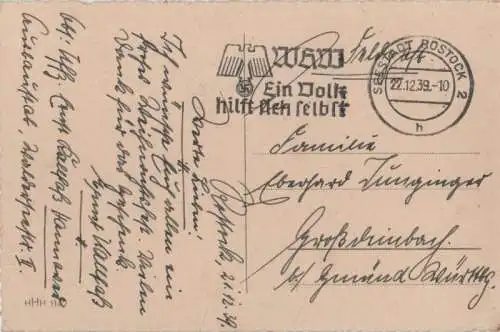 Feldpost
WHW
Ein Volk
hilft sich selbst
SEESTADT ROSTOCK 2
22.12.39.-10
h
Familie
Eberhard Junginger
Großdeinbach
b/ Gmünd Württbg.
Rostock, 21.12.39.
Werte Familie!
Ich wünsche Euch allen ein
frohes Weihnachtsfest. Vielen
Dank für das Geschenk.
Ernst
Abs. Uffz. Ernst
HHH